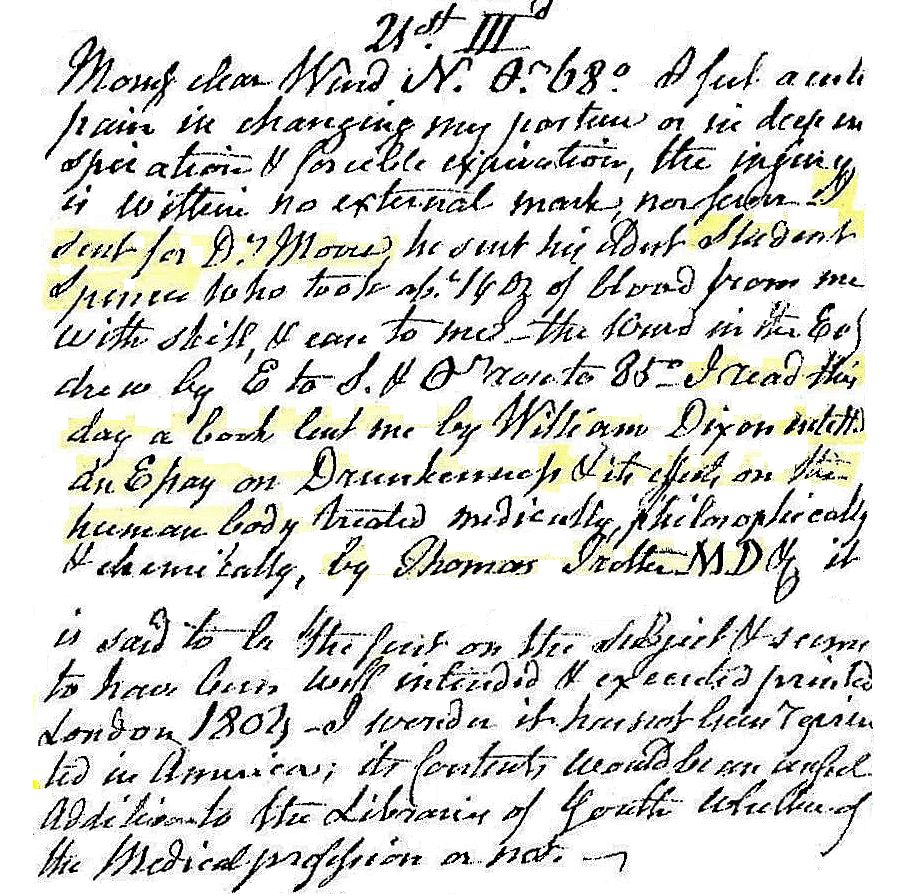 21st. III d
Morng clear Wind N. Or. 68° I feel acute
pain in changing my posture or in deep in
spiration & forcible expiration, the injury
is within no external mark, nor fever I
sent for Dr. Moore, he sent his Student
Spence who took abt. 14 oz of blood from me
with skill, & ease to me - the Wind in the Evg
drew by E to S. & Or rose to 85° - I read this
day a book lent me by William Dixon intitd
An Essay on Drunkenness & its effects on the
human body treated medically, philosophically
& chemically, by Thomas Trotter M.D & it
is said to be the first on the subject & seems
to have been well intended & executed printed
London 1804 - I wonder it has not been reprin
ted in America; its Contents would be an useful
Addition to the Libraries of Youth whether of
the Medical profession or not. -